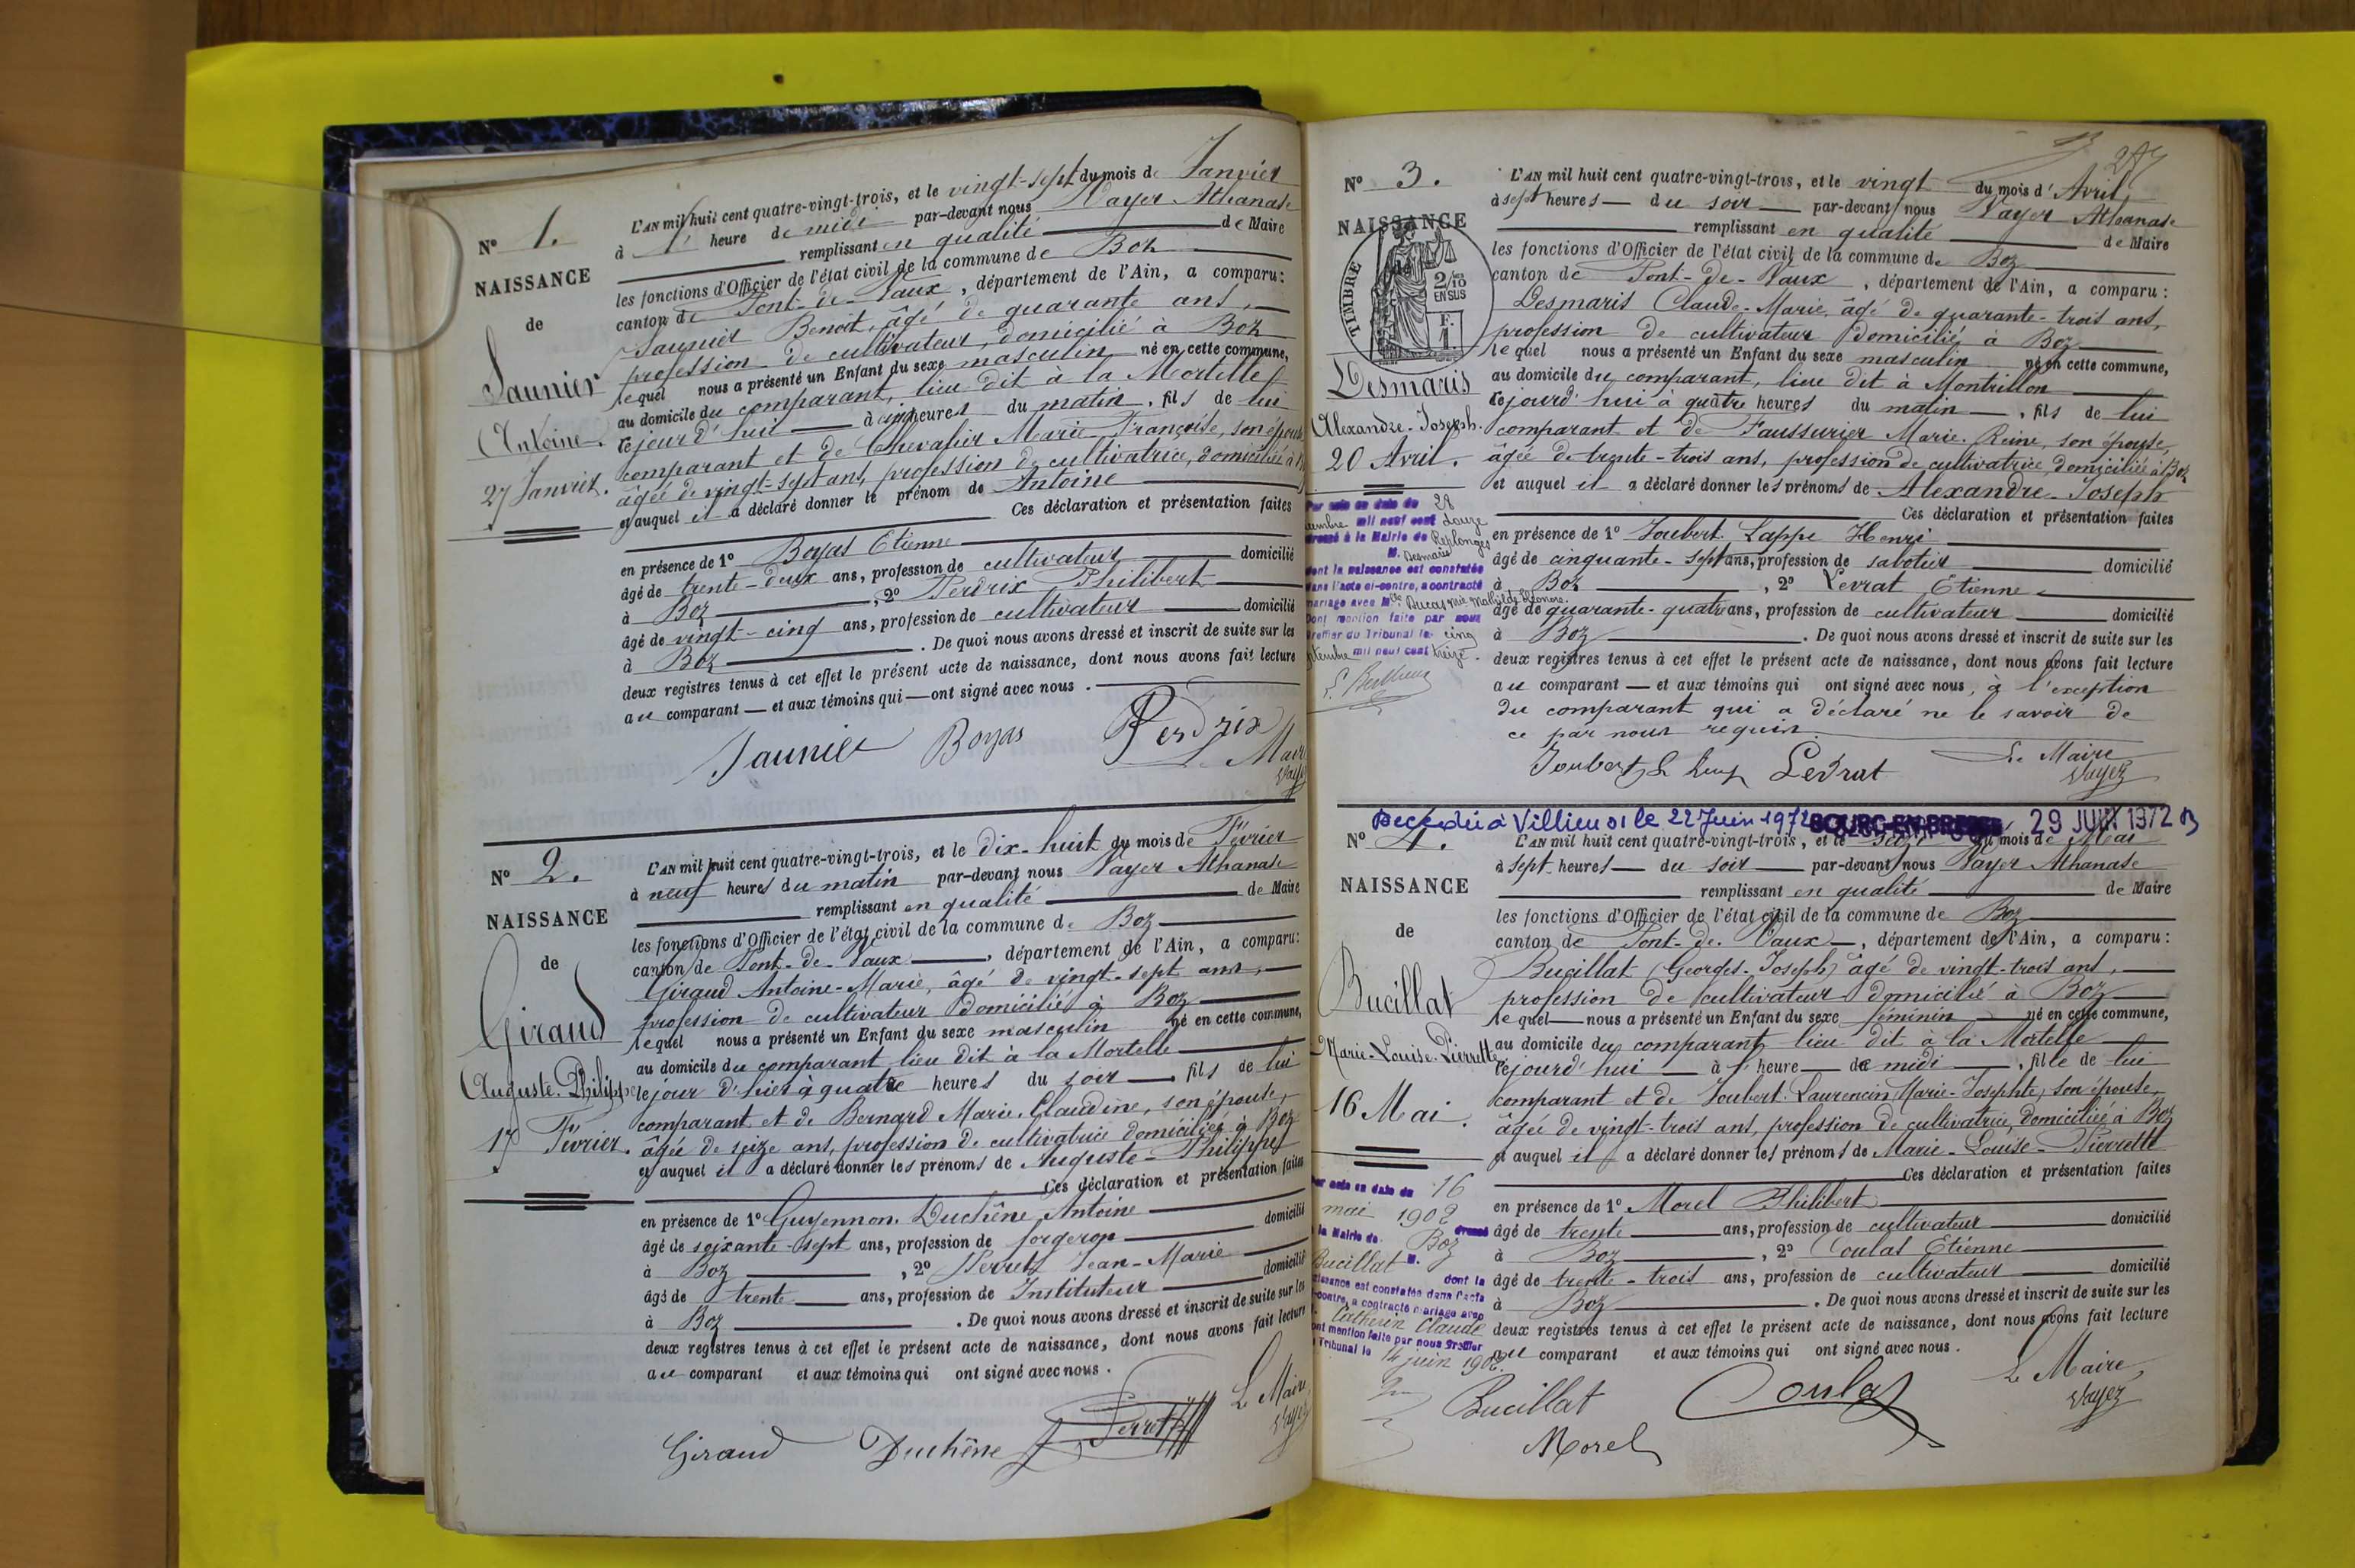 N° 1.
NAISSANCE
de
Saunier
Antoine.
27 Janvier.
L'AN mil huit cent quatre-vingt-trois, et le vingt-sept du mois de Janvier
à 1 heure de midi par-devant nous Vayer Athanase
remplissant en qualité de Maire
les fonctions d'Officier de l'état civil de la commune de Boz
canton de Pont-de-Vaux, département de l'Ain, a comparu:
Saunier Benoit, âgé de quarante ans,
profession de cultivateur, domicilié à Boz
lequel nous a présenté un Enfant du sexe masculin né en cette commune,
au domicile du comparant, lieu dit à la Mortelle
cejourd'hui à cinq heures du matin, fils de lui
comparant et de Chevalier Marie Françoise, son épouse
âgée de vingt-sept ans, profession de cultivatrice, domiciliée à
et auquel il a déclaré donner le prénom de Antoine
Ces déclaration et présentation faites
en présence de 1° Boyas Etienne
âgé de trente-deux ans, profession de cultivateur domicilié
à Boz, 2° Perdrix Philibert
âgé de vingt-cinq ans, profession de cultivateur domicilié
à Boz. De quoi nous avons dressé et inscrit de suite sur les
deux registres tenus à cet effet le présent acte de naissance, dont nous avons fait lecture
au comparant et aux témoins qui ont signé avec nous.
Saunier Boyas Perdrix
Le Maire
Vayer
N° 2.
NAISSANCE
de
Giraud
Auguste-Philippe
17 Février.
L'AN mil huit cent quatre-vingt-trois, et le dix-huit du mois de Février
à neuf heures du matin par-devant nous Vayer Athanase
remplissant en qualité de Maire
les fonctions d'Officier de l'état civil de la commune de Boz
canton de Pont-de-Vaux, département de l'Ain, a comparu:
Giraud Antoine-Marie, âgé de vingt-sept ans,
profession de cultivateur domicilié à Boz
lequel nous a présenté un Enfant du sexe masculin né en cette commune,
au domicile du comparant lieu dit à la Mortelle
le jour d'hier à quatre heures du soir, fils de lui
comparant et de Bernard Marie-Claudine, son épouse,
âgée de seize ans, profession de cultivatrice domiciliée à Boz
et auquel il a déclaré donner les prénoms de Auguste-Philippe
Ces déclaration et présentation faites
en présence de 1° Guyennon-Duchêne Antoine
âgé de soixante-sept ans, profession de forgeron domicilié
à Boz, 2° Perret Jean-Marie
âgé de trente ans, profession de Instituteur domicilié
à Boz. De quoi nous avons dressé et inscrit de suite sur les
deux registres tenus à cet effet le présent acte de naissance, dont nous avons fait lecture
au comparant et aux témoins qui ont signé avec nous.
Giraud Duchêne Perret
Le Maire
Vayer
N° 3.
NAISSANCE
TIMBRE
2/10
EN SUS
F.
1
Desmaris
Alexandre-Joseph.
20 Avril.
Par acte en date du 28
mil neuf cent douze
à la Mairie de Replonges
M. Desmaris
dont la naissance est constatée
dans l'acte ci-contre, a contracté
mariage avec Melle Ducas Mie Mathilde Eléonore.
Dont mention faite par nous
Greffier du Tribunal le cinq
mil neuf cent treize.
L'AN mil huit cent quatre-vingt-trois, et le vingt du mois d'Avril,
à sept heures du soir par-devant nous Vayer Athanase
remplissant en qualité de Maire
les fonctions d'Officier de l'état civil de la commune de Boz
canton de Pont-de-Vaux, département de l'Ain, a comparu:
Desmaris Claude-Marie, âgé de quarante-trois ans,
profession de cultivateur domicilié à Boz
lequel nous a présenté un Enfant du sexe masculin né en cette commune,
au domicile du comparant, lieu dit à Montrillon
cejourd'hui à quatre heures du matin, fils de lui
comparant et de Faussurier Marie-Reine, son épouse,
âgée de trente-trois ans, profession de cultivatrice, domiciliée à Boz
et auquel il a déclaré donner les prénoms de Alexandre-Joseph
Ces déclaration et présentation faites
en présence de 1° Joubert-Lappe Henri
âgé de cinquante-sept ans, profession de sabotier domicilié
à Boz, 2° Levrat Etienne
âgé de quarante-quatre ans, profession de cultivateur domicilié
à Boz. De quoi nous avons dressé et inscrit de suite sur les
deux registres tenus à cet effet le présent acte de naissance, dont nous avons fait lecture
au comparant et aux témoins qui ont signé avec nous, à l'exception
du comparant qui a déclaré ne le savoir de
ce par nous requis.
Joubert Levrat
Le Maire
Vayer
Décédée à Villieu 01 le 22 Juin 1972 BOURG-EN-BRESSE 29 JUIN 1972
N° 4.
NAISSANCE
de
Bucillat
Marie-Louise-Pierrette
16 Mai.
par acte en date du 16
mai 1902 dressé
à la Mairie de Boz
Bucillat M.
dont la
naissance est constatée dans l'acte
ci-contre, a contracté mariage avec
Catherin Claude
Dont mention faite par nous Greffier
du Tribunal le 14 juin 1902.
L'AN mil huit cent quatre-vingt-trois, et le seize du mois de Mai
à sept heures du soir par-devant nous Vayer Athanase
remplissant en qualité de Maire
les fonctions d'Officier de l'état civil de la commune de Boz
canton de Pont-de-Vaux, département de l'Ain, a comparu:
Bucillat (Georges-Joseph) âgé de vingt-trois ans,
profession de cultivateur domicilié à Boz
lequel nous a présenté un Enfant du sexe féminin né en cette commune,
au domicile du comparant lieu dit à la Mortelle
cejourd'hui à 1 heure de midi, fille de lui
comparant et de Joubert-Laurencin Marie-Josephte, son épouse,
âgée de vingt-trois ans, profession de cultivatrice, domiciliée à Boz
et auquel il a déclaré donner les prénoms de Marie-Louise-Pierrette
Ces déclaration et présentation faites
en présence de 1° Morel Philibert
âgé de trente ans, profession de cultivateur domicilié
à Boz, 2° Coulas Etienne
âgé de trente-trois ans, profession de cultivateur domicilié
à Boz. De quoi nous avons dressé et inscrit de suite sur les
deux registres tenus à cet effet le présent acte de naissance, dont nous avons fait lecture
au comparant et aux témoins qui ont signé avec nous.
Bucillat Coulas
Le Maire
Vayer
Morel